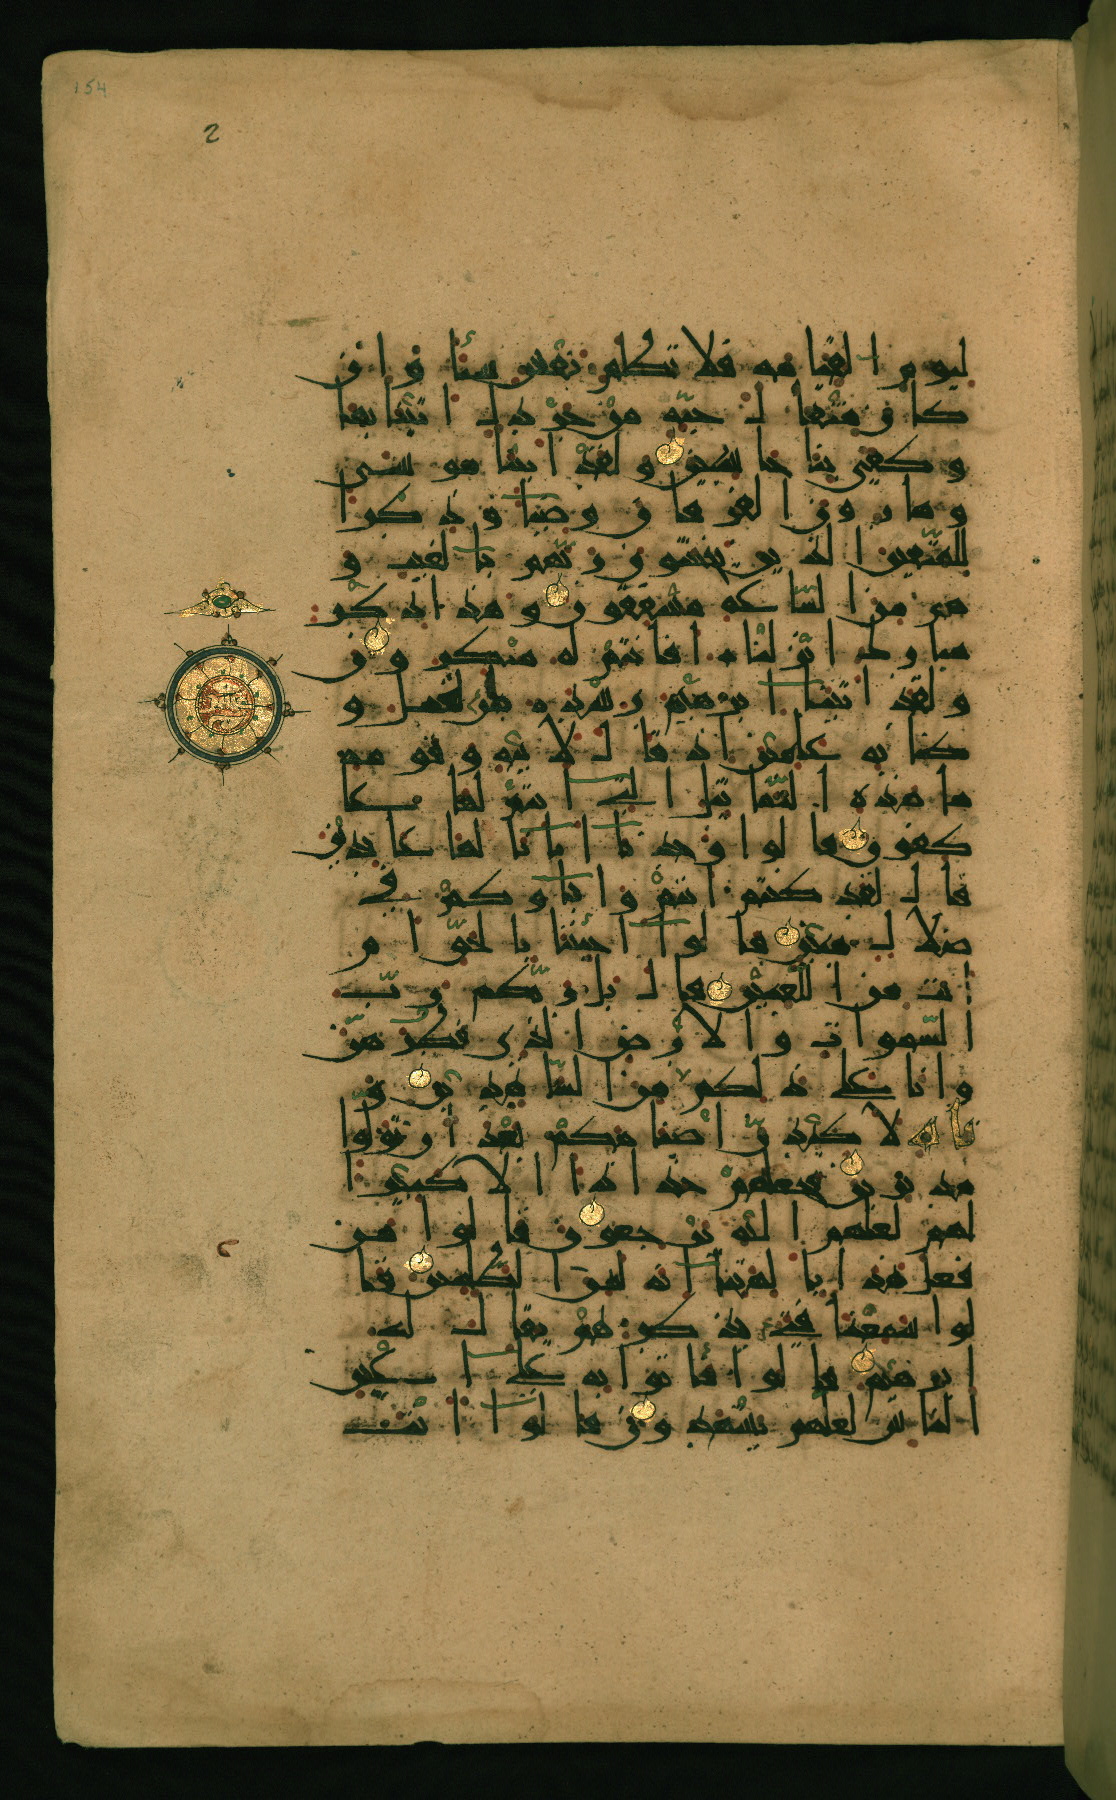 154
2
ليوم القيامة فلا تظلم نفس شيئا وإن
كان مثقال حبة من خردل أتينا بها
وكفى بنا حاسبين ولقد آتينا موسى
وهارون الفرقان وضياء وذكرا
للمتقين الذين يخشون ربهم بالغيب و
هم من الساعة مشفقون وهذا ذكر
مبارك أنزلناه أفأنتم له منكرون
ولقد آتينا إبرهيم رشده من قبل و
كنا به علمين إذ قال لأبيه وقومه
ما هذه التماثيل التي أنتم لها عا
كفون قالوا وجدنا آباءنا لها عابدين
قال لقد كنتم أنتم وآباؤكم في
ضلال مبين قالوا أجئتنا بالحق أم
أنت من اللعبين قال بل ربكم رب
السموات والأرض الذي فطرهن
وأنا على ذلكم من الشاهدين و
تالله لأكيدن أصنامكم بعد أن تولوا
مدبرين فجعلهم جذاذا إلا كبيرا
لهم لعلهم إليه يرجعون قالوا من
فعل هذا بآلهتنا إنه لمن الظلمين قا
لوا سمعنا فتى يذكرهم يقال له
إبرهيم قالوا فأتوا به على أعين
الناس لعلهم يشهدون قالوا أأنت